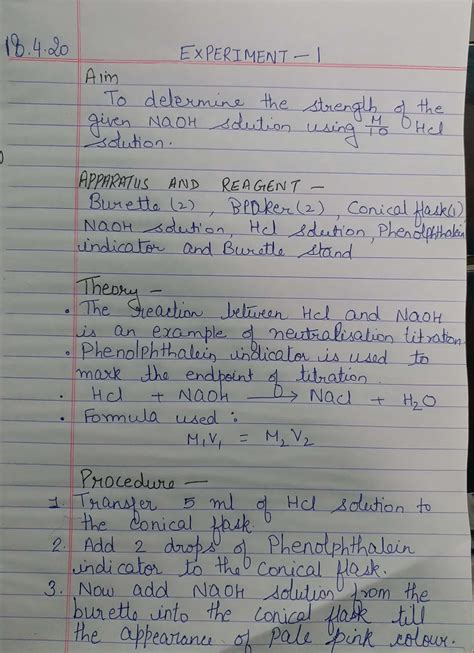 18.4.20
EXPERIMENT - 1
Aim
To determine the strength of the
given NaOH solution using M/10 Hcl
solution.
APPARATUS AND REAGENT -
Burette (2), Beaker (2), Conical flask(1)
NaOH solution, Hcl solution, Phenolphthalein
indicator and Burette stand
Theory -
• The reaction between Hcl and NaOH
is an example of neutralisation titration.
• Phenolphthalein indicator is used to
mark the endpoint of titration.
• Hcl + NaOH → Nacl + H₂O
• Formula used :
M₁V₁ = M₂V₂
Procedure -
1. Transfer 5 ml of Hcl solution to
the conical flask.
2. Add 2 drops of Phenolphthalein
indicator to the conical flask.
3. Now add NaOH solution from the
burette into the conical flask till
the appearance of Pale pink colour.